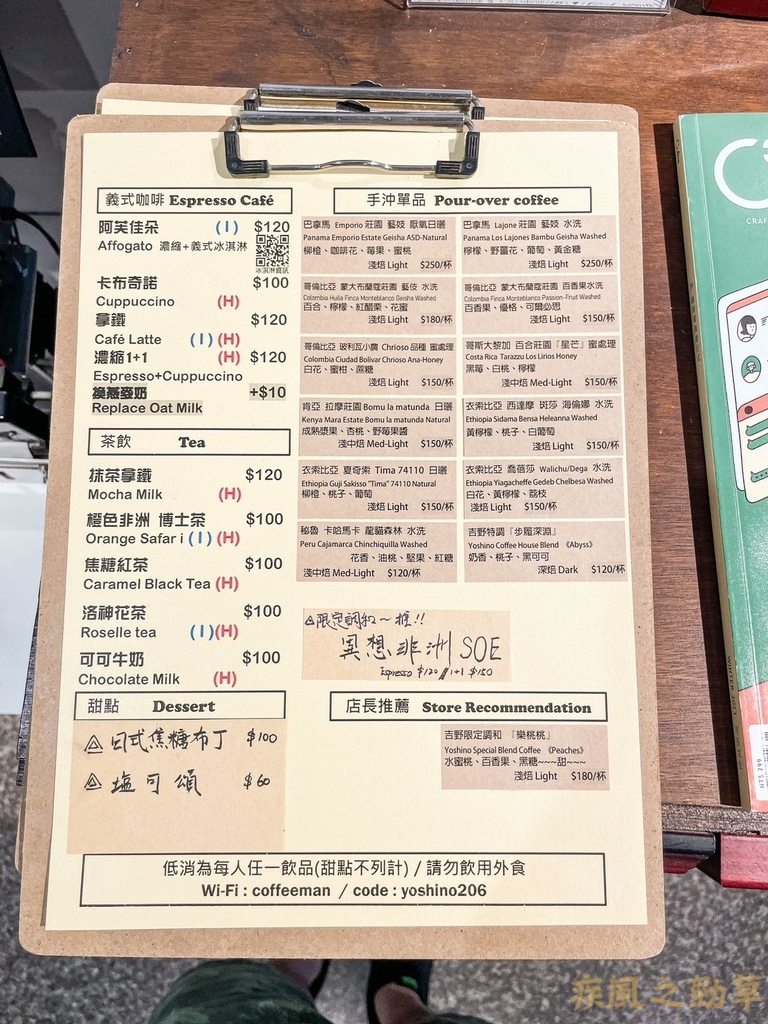 義式咖啡 Espresso Café
阿芙佳朵 (I) $120
Affogato 濃縮+義式冰淇淋
冰淇淋資訊
卡布奇諾 $100
Cuppuccino (H)
拿鐵 $120
Café Latte (I)(H)
濃縮1+1 (H) $120
Espresso+Cuppuccino
換燕麥奶 +$10
Replace Oat Milk
茶飲 Tea
抹茶拿鐵 $120
Mocha Milk (H)
橙色非洲 博士茶 $100
Orange Safar i (I)(H)
焦糖紅茶 $100
Caramel Black Tea (H)
洛神花茶 $100
Roselle tea (I)(H)
可可牛奶 $100
Chocolate Milk (H)
甜點 Dessert
日式焦糖布丁 $100
塩可頌 $60
手沖單品 Pour-over coffee
巴拿馬 Emporio 莊園 藝妓 厭氧日曬
Panama Emporio Estate Geisha ASD-Natural
柳橙、咖啡花、莓果、蜜桃
淺焙 Light $250/杯
巴拿馬 Lajone 莊園 藝妓 水洗
Panama Los Lajones Bambu Geisha Washed
檸檬、野薑花、葡萄、黃金糖
淺焙 Light $250/杯
哥倫比亞 蒙大布蘭寇莊園 藝伎 水洗
Colombia Huila Finca Monteblanco Geisha Washed
百合、檸檬、紅醋栗、花蜜
淺焙 Light $180/杯
哥倫比亞 蒙大布蘭寇莊園 百香果水洗
Colombia Finca Monteblanco Passion-Fruit Washed
百香果、優格、可爾必思
淺焙 Light $150/杯
哥倫比亞 玻利瓦小農 Chrioso 品種 蜜處理
Colombia Ciudad Bolivar Chrioso Ana-Honey
白花、蜜柑、蔗糖
淺焙 Light $150/杯
哥斯大黎加 百合莊園『星芒』蜜處理
Costa Rica Tarazzu Los Lirios Honey
黑莓、白桃、檸檬
淺中焙 Med-Light $150/杯
肯亞 拉摩莊園 Bomu la matunda 日曬
Kenya Mara Estate Bomu la matunda Natural
成熟漿果、杏桃、野莓果醬
淺中焙 Med-Light $150/杯
衣索比亞 西達摩 班莎 海倫娜 水洗
Ethiopia Sidama Bensa Heleanna Washed
黃檸檬、桃子、白葡萄
淺焙 Light $150/杯
衣索比亞 夏奇索 Tima 74110 日曬
Ethiopia Guji Sakisso "Tima" 74110 Natural
柳橙、桃子、葡萄
淺焙 Light $150/杯
衣索比亞 喬蓓莎 Walichu/Dega 水洗
Ethiopia Yiagacheffe Gedeb Chelbesa Washed
白花、黃檸檬、荔枝
淺焙 Light $150/杯
秘魯 卡哈馬卡 龍貓森林 水洗
Peru Cajamarca Chinchiquilla Washed
花香、油桃、堅果、紅糖
淺中焙 Med-Light $120/杯
吉野特調『步履深淵』
Yoshino Coffee House Blend 《Abyss》
奶香、桃子、黑可可
深焙 Dark $120/杯
限定調和～推!!
異想非洲 SOE
Espresso $120 / 1+1 $150
店長推薦 Store Recommendation
吉野限定調和 『樂桃桃』
Yoshino Special Blend Coffee 《Peaches》
水蜜桃、百香果、黑糖~~~甜~~~
淺焙 Light $180/杯
低消為每人任一飲品(甜點不列計) / 請勿飲用外食
Wi-Fi : coffeeman / code : yoshino206
NT$ 299
疾風之勁草